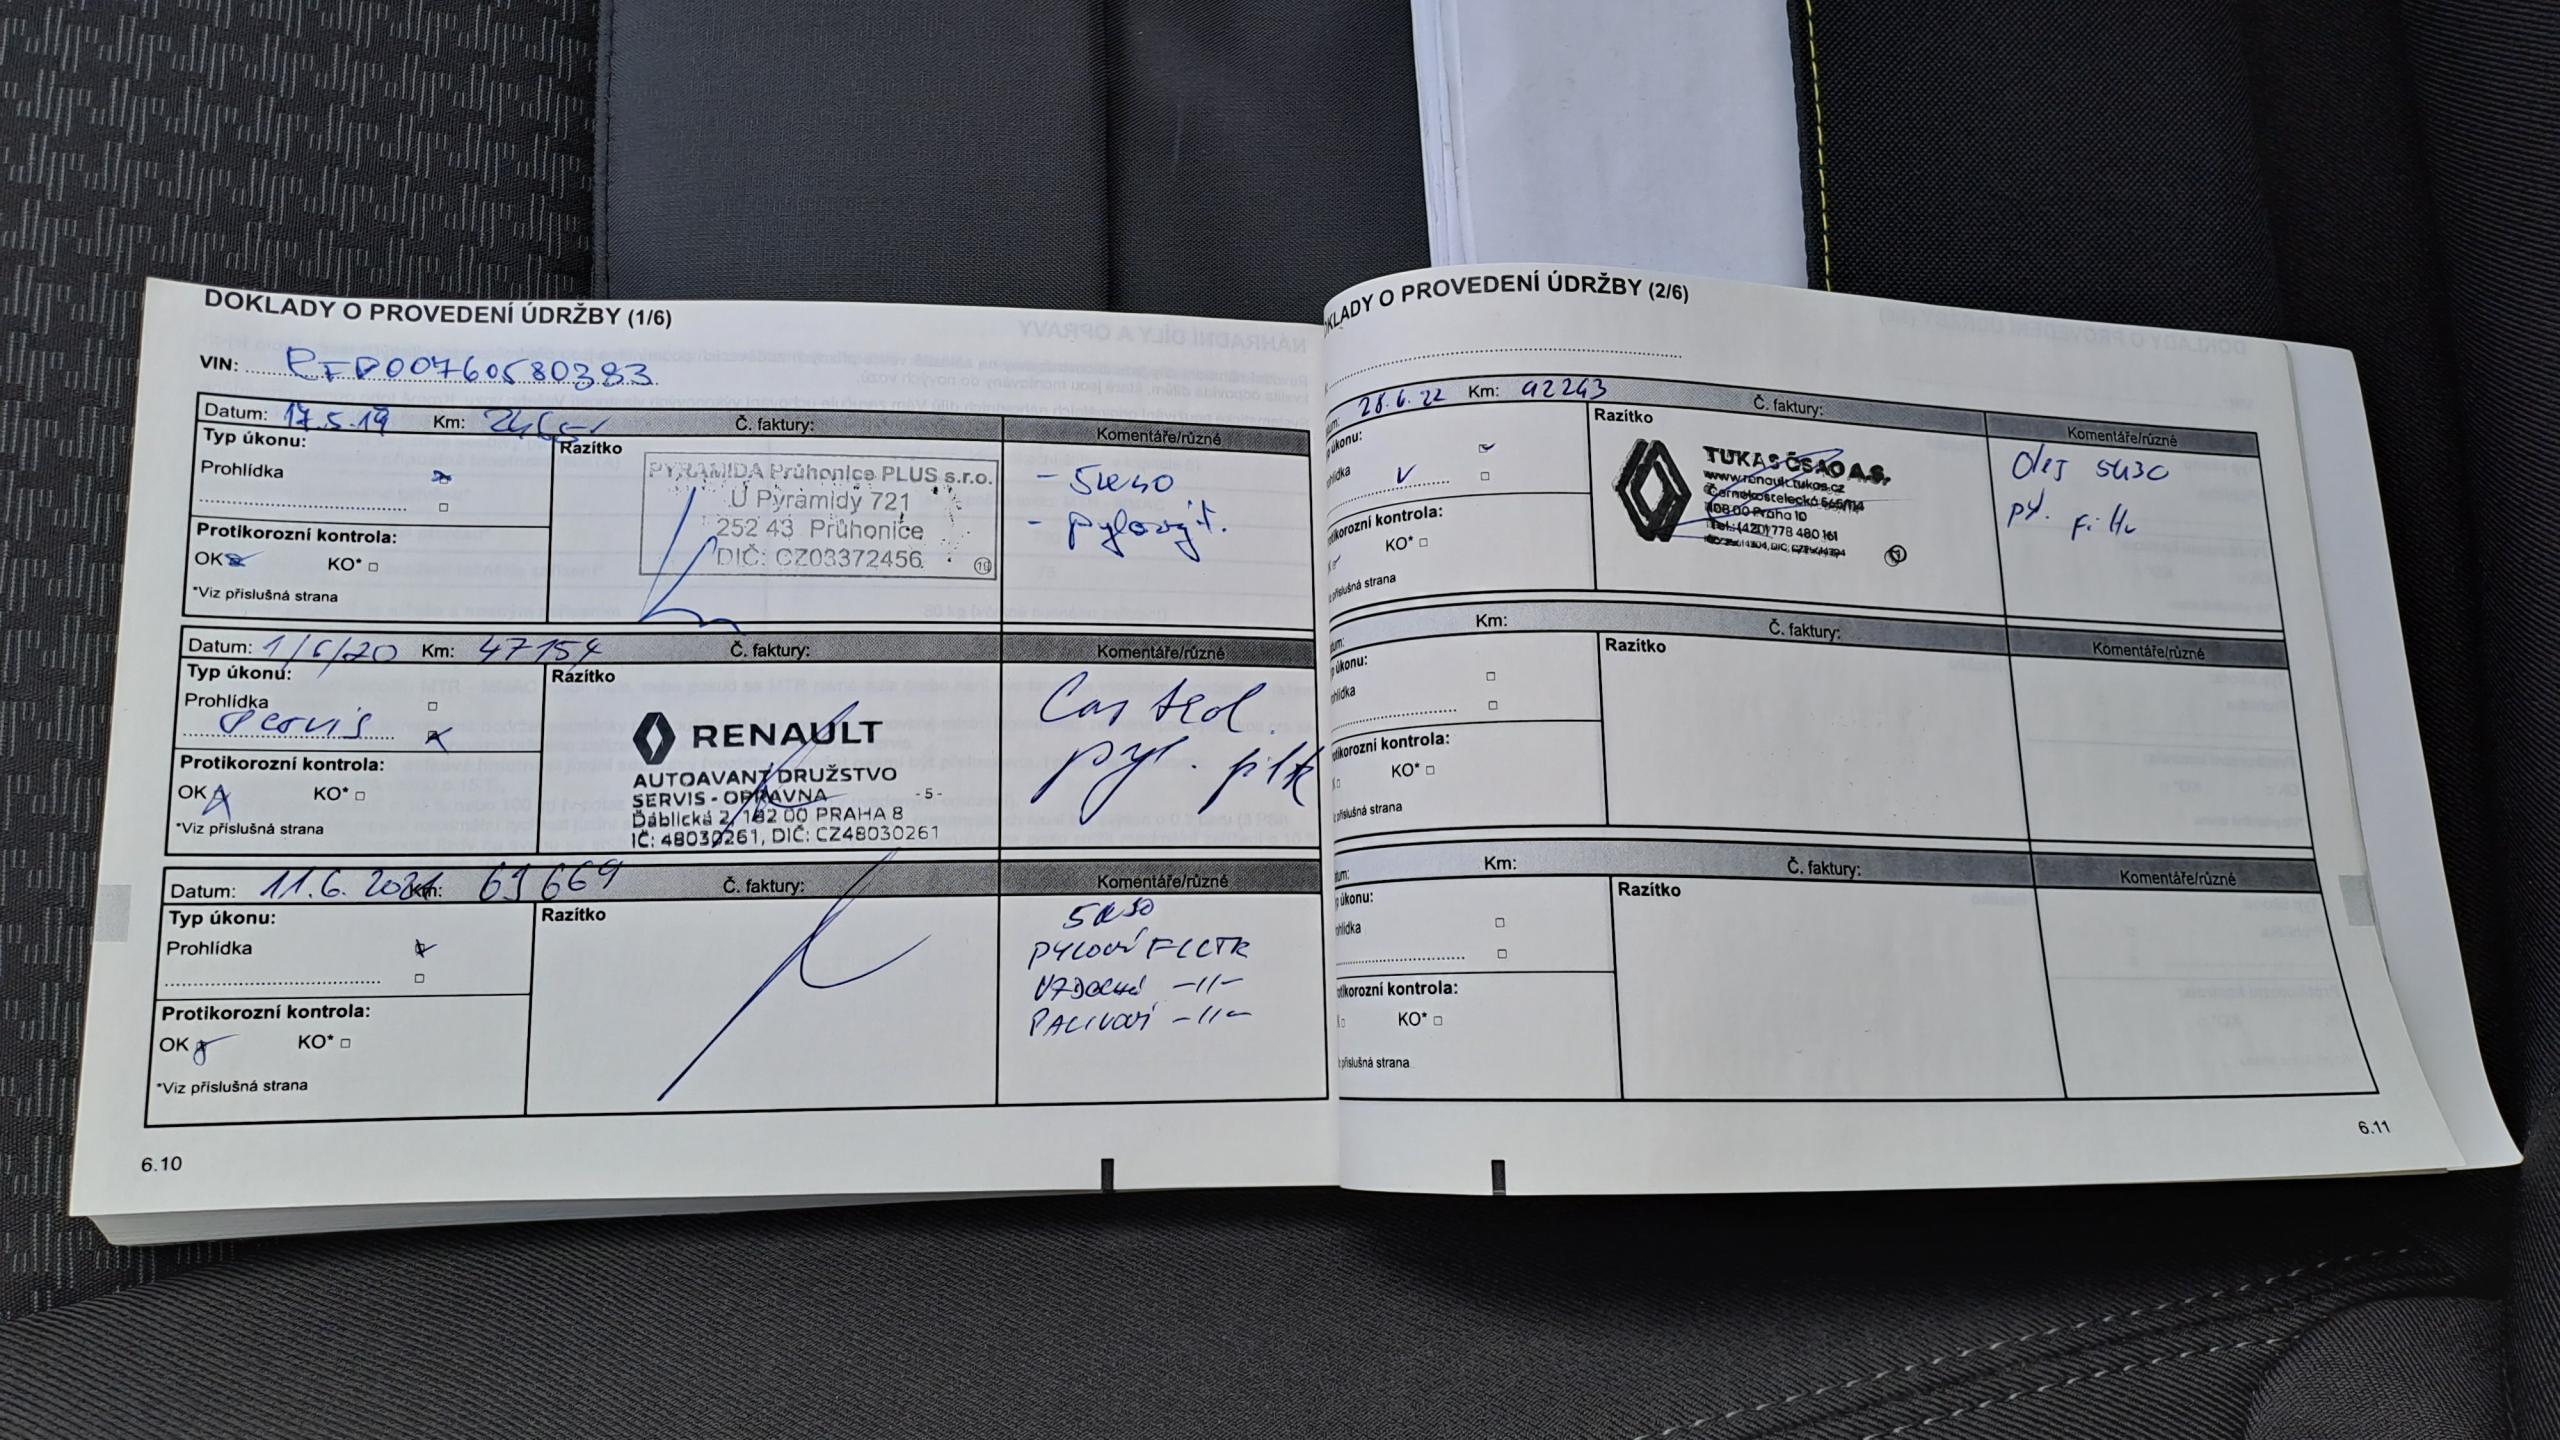 DOKLADY O PROVEDENÍ ÚDRŽBY (1/6)
VIN:
Datum: 17.5.19 Km: Č. faktury: Komentáře/různé
Typ úkonu: Razítko
Prohlídka
PYRAMIDA Průhonice PLUS s.r.o.
U Pyramidy 721
252 43 Průhonice
DIČ: CZ03372456
19
- 5W40
- pylový f.
Protikorozní kontrola:
OK KO*
*Viz příslušná strana
Datum: 1/6/20 Km: 47154 Č. faktury: Komentáře/různé
Typ úkonu: Razítko
Prohlídka
servis
RENAULT
AUTOAVANT DRUŽSTVO
SERVIS - OPRAVNA -5-
Ďáblická 2, 182 00 PRAHA 8
IČ: 48030261, DIČ: CZ48030261
Castrol
pyl. filtr
Protikorozní kontrola:
OK KO*
*Viz příslušná strana
Datum: 11.6.2021 Km: 69669 Č. faktury: Komentáře/různé
Typ úkonu: Razítko
Prohlídka
5W30
PYLOVÝ FILTR
VZDUCHOVÝ -11-
PALIVOVÝ -11-
Protikorozní kontrola:
OK KO*
*Viz příslušná strana
6.10
KLADY O PROVEDENÍ ÚDRŽBY (2/6)
tum: 28.6.22 Km: 92243 Č. faktury: Komentáře/různé
p úkonu: Razítko
ohlídka
TUKAS ČSAO A.S.
www.renault.tukas.cz
Černokostelecká 565/114
108 00 Praha 10
Tel.: (420) 778 480 161
Olej 5W30
pyl. filtr
otikorozní kontrola:
K KO*
z příslušná strana
tum: Km: Č. faktury: Komentáře/různé
p úkonu: Razítko
ohlídka
otikorozní kontrola:
K KO*
z příslušná strana
tum: Km: Č. faktury: Komentáře/různé
p úkonu: Razítko
ohlídka
otikorozní kontrola:
K KO*
z příslušná strana
6.11